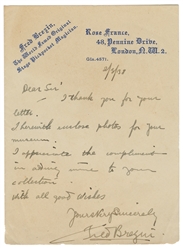 Fred Brezin,
The World Famed Original
Stage Pickpocket Magician.
Rose France,
48, Pennine Drive,
London, N.W. 2.
Dear Sir
I thank you for your
letter.
I herewith enclose photos for your
museum.
I appreciate the compliment
in adding mine to your
collection.
With all good wishes
Yours Very Sincerely
Fred Brezin